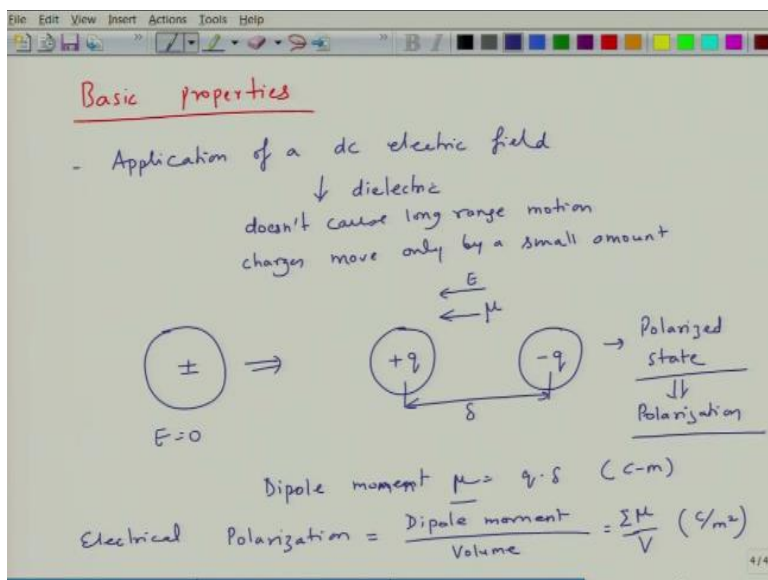 File Edit View Insert Actions Tools Help
B I
Basic properties
- Application of a dc electric field
↓ dielectric
doesn't cause long range motion
charges move only by a small amount
E
μ
± ⇒ +q -q → Polarized
state
⇓
Polarization
δ
E=0
Dipole moment μ = q·δ (C-m)
Electrical Polarization = Dipole moment / Volume = Σμ / V (C/m²)
4/4